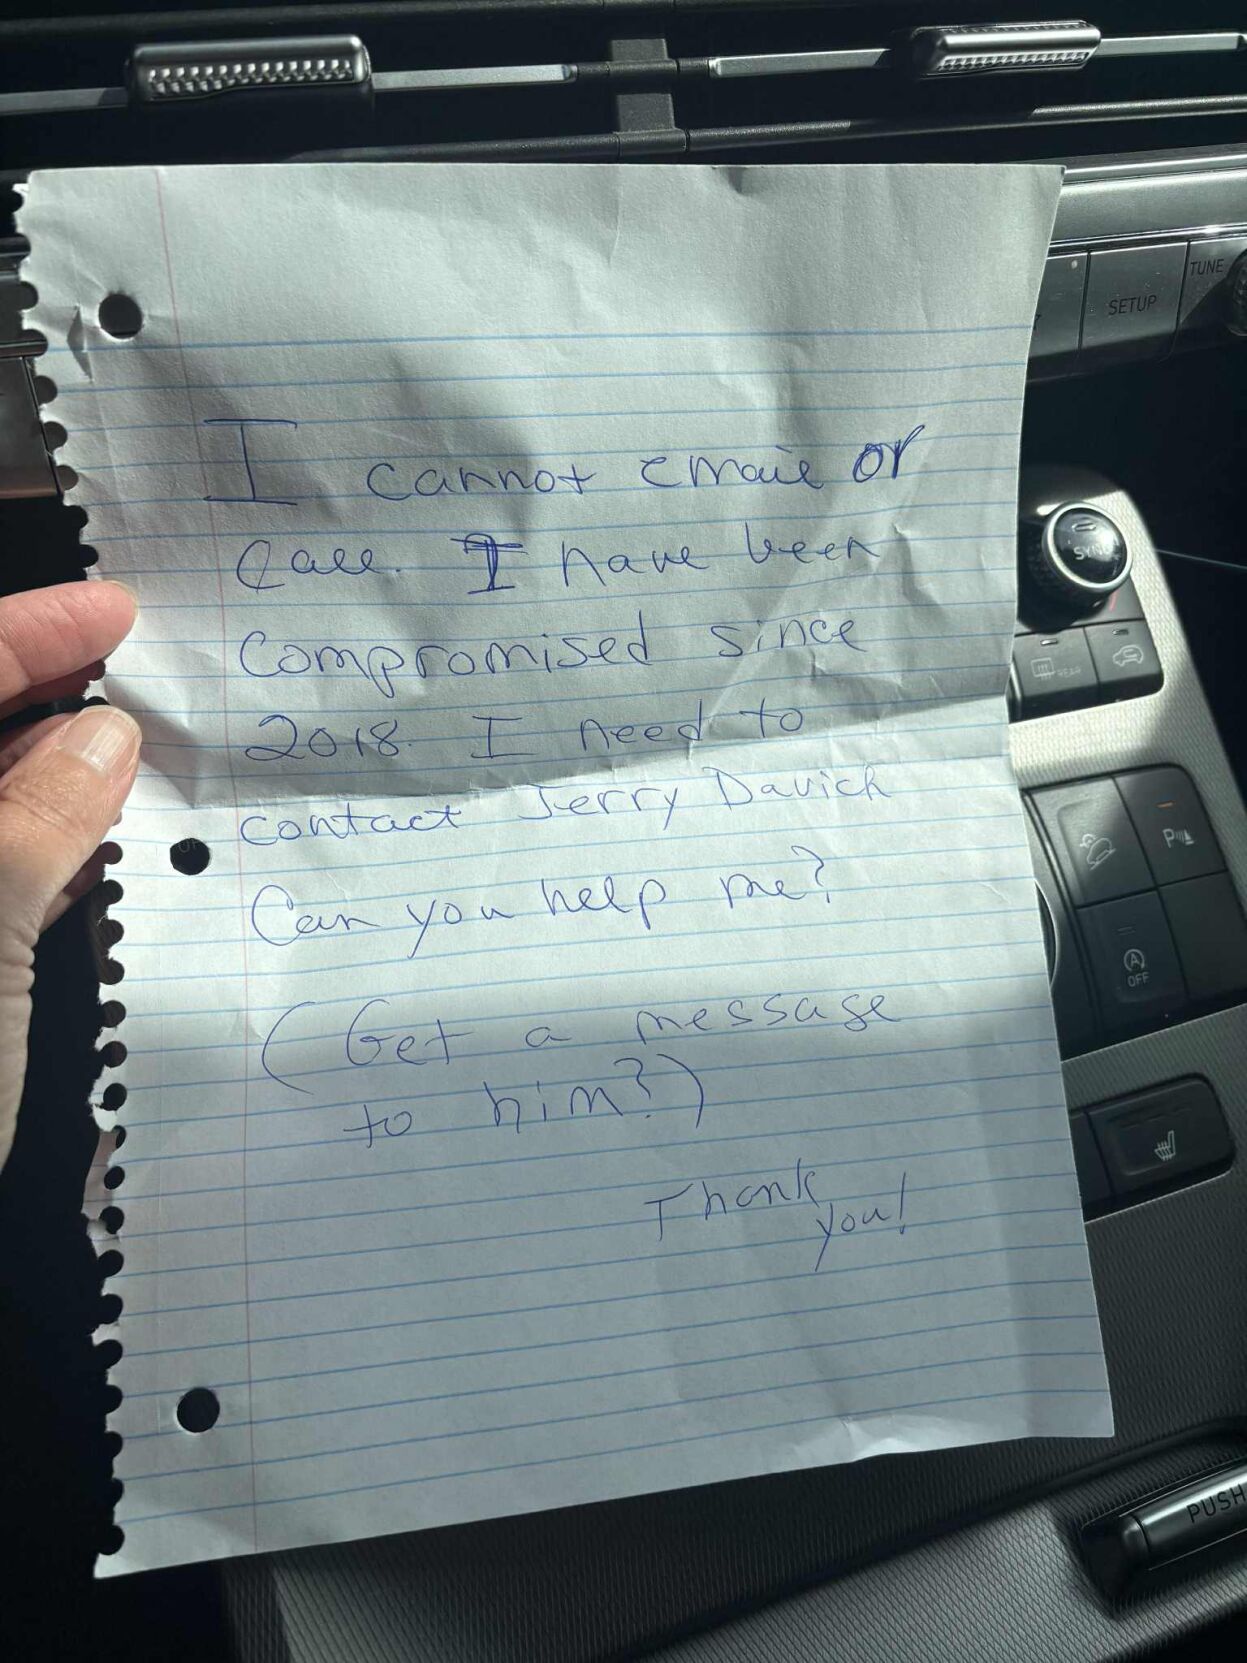 TUNE
SETUP
I cannot email or
call. I have been
compromised since
2018. I need to
contact Jerry Davich
Can you help me?
(Get a message
to him?)
Thank
you!
SYNC
REAR
P
A
OFF
PUSH